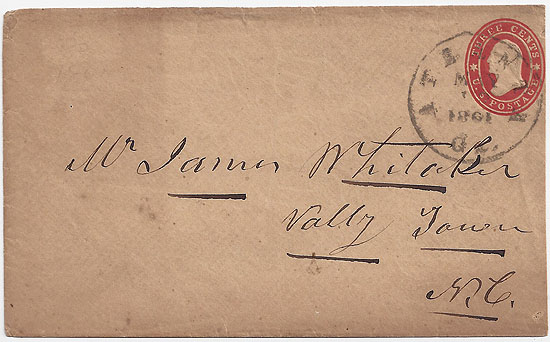 THREE CENTS
U.S. POSTAGE
ATLANTA
1861
Ga.
Mr James Whitaker
Vally Town
N.C.